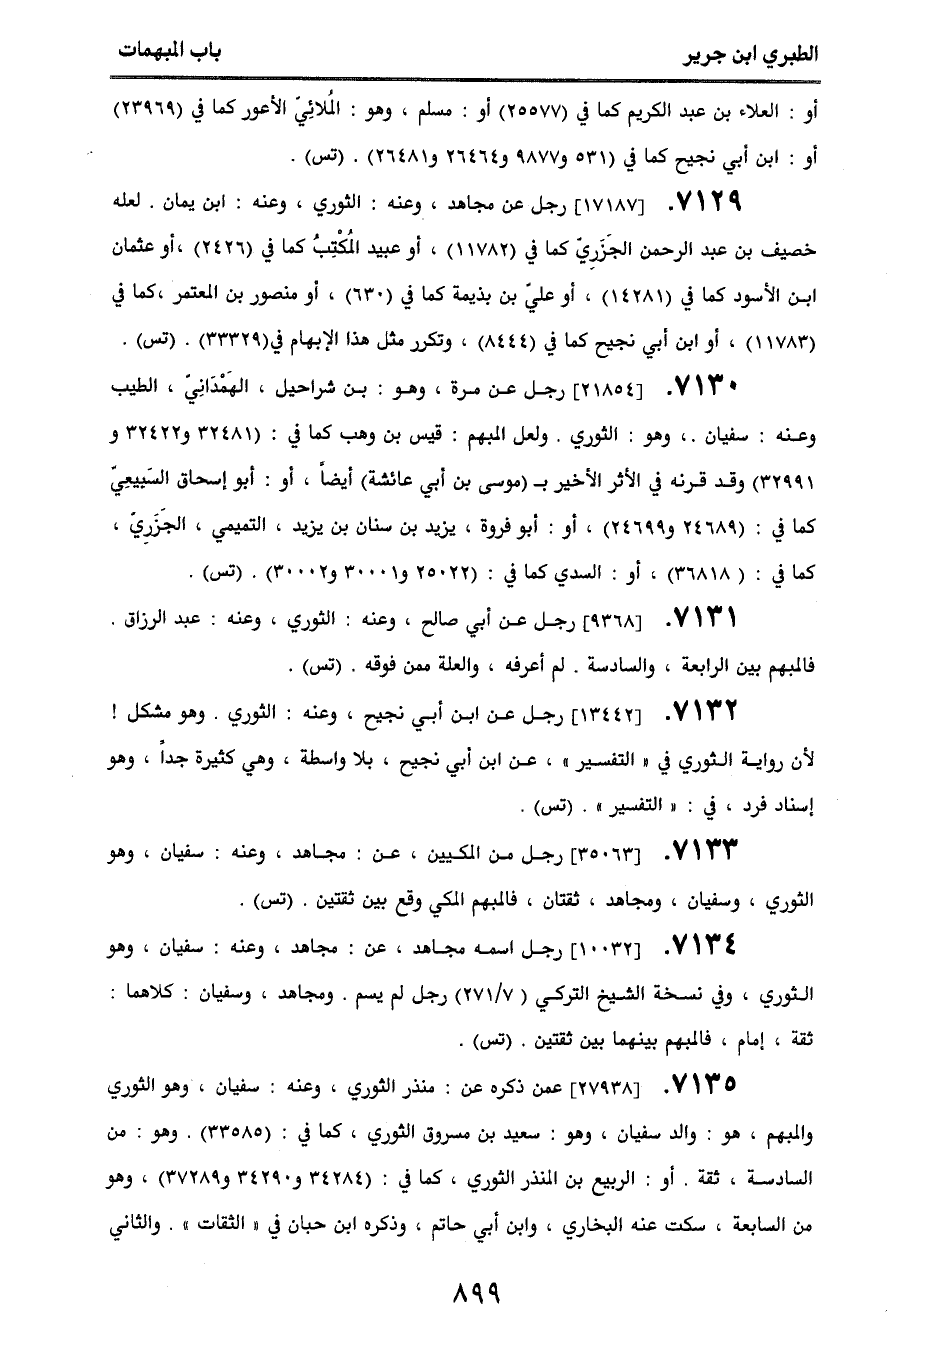 الطبري ابن جرير
باب المبهمات
أو : العلاء بن عبد الكريم كما في (٢٥٥٧٧) أو : مسلم ، وهو : المُلائِيّ الأعور كما في (٢٣٩٦٩)
أو : ابن أبي نجيح كما في (٥٣١ و٩٨٧٧ و٢٦٤٦٤ و٢٦٤٨١) . (تس) .
٧١٢٩. [١٧١٨٧] رجل عن مجاهد ، وعنه : الثوري ، وعنه : ابن يمان . لعله
خصيف بن عبد الرحمن الجَزَرِيّ كما في (١١٧٨٢) ، أو عبيد المُكْتِبُ كما في (٢٤٢٦) ،أو عثمان
ابن الأسود كما في (١٤٢٨١) ، أو عليّ بن بذيمة كما في (٦٣٠) ، أو منصور بن المعتمر ،كما في
(١١٧٨٣) ، أو ابن أبي نجيح كما في (٨٤٤٤) ، وتكرر مثل هذا الإبهام في(٣٣٣٢٩) . (تس) .
٧١٣٠. [٢١٨٥٤] رجل عن مرة ، وهو : بن شراحيل ، الهَمْدَانِيّ ، الطيب
وعنه : سفيان .، وهو : الثوري . ولعل المبهم : قيس بن وهب كما في : (٣٢٤٨١ و٣٢٤٢٢ و
٣٢٩٩١) وقد قرنه في الأثر الأخير بـ (موسى بن أبي عائشة) أيضاً ، أو : أبو إسحاق السَّبِيعيّ
كما في : (٢٤٦٨٩ و٢٤٦٩٩) ، أو : أبو فروة ، يزيد بن سنان بن يزيد ، التميمي ، الجَزَرِيّ ،
كما في : ( ٣٦٨١٨) ، أو : السدي كما في : (٢٥٠٢٢ و٣٠٠٠١ و٣٠٠٠٢) . (تس) .
٧١٣١. [٩٣٦٨] رجل عن أبي صالح ، وعنه : الثوري ، وعنه : عبد الرزاق .
فالمبهم بين الرابعة ، والسادسة . لم أعرفه ، والعلة ممن فوقه . (تس) .
٧١٣٢. [١٣٤٤٢] رجل عن ابن أبي نجيح ، وعنه : الثوري . وهو مشكل !
لأن رواية الثوري في « التفسير » ، عن ابن أبي نجيح ، بلا واسطة ، وهي كثيرة جداً ، وهو
إسناد فرد ، في : « التفسير » . (تس) .
٧١٣٣. [٣٥٠٦٣] رجل من المكيين ، عن : مجاهد ، وعنه : سفيان ، وهو
الثوري ، وسفيان ، ومجاهد ، ثقتان ، فالمبهم المكي وقع بين ثقتين . (تس) .
٧١٣٤. [١٠٠٣٢] رجل اسمه مجاهد ، عن : مجاهد ، وعنه : سفيان ، وهو
الثوري ، وفي نسخة الشيخ التركي ( ٢٧١/٧) رجل لم يسم . ومجاهد ، وسفيان : كلاهما :
ثقة ، إمام ، فالمبهم بينهما بين ثقتين . (تس) .
٧١٣٥. [٢٧٩٣٨] عمن ذكره عن : منذر الثوري ، وعنه : سفيان ، وهو الثوري
والمبهم ، هو : والد سفيان ، وهو : سعيد بن مسروق الثوري ، كما في : (٣٣٥٨٥) . وهو : من
السادسة ، ثقة . أو : الربيع بن المنذر الثوري ، كما في : (٣٤٢٨٤ و٣٤٢٩٠ و٣٧٢٨٩) ، وهو
من السابعة ، سكت عنه البخاري ، وابن أبي حاتم ، وذكره ابن حبان في « الثقات » . والثاني
٨٩٩